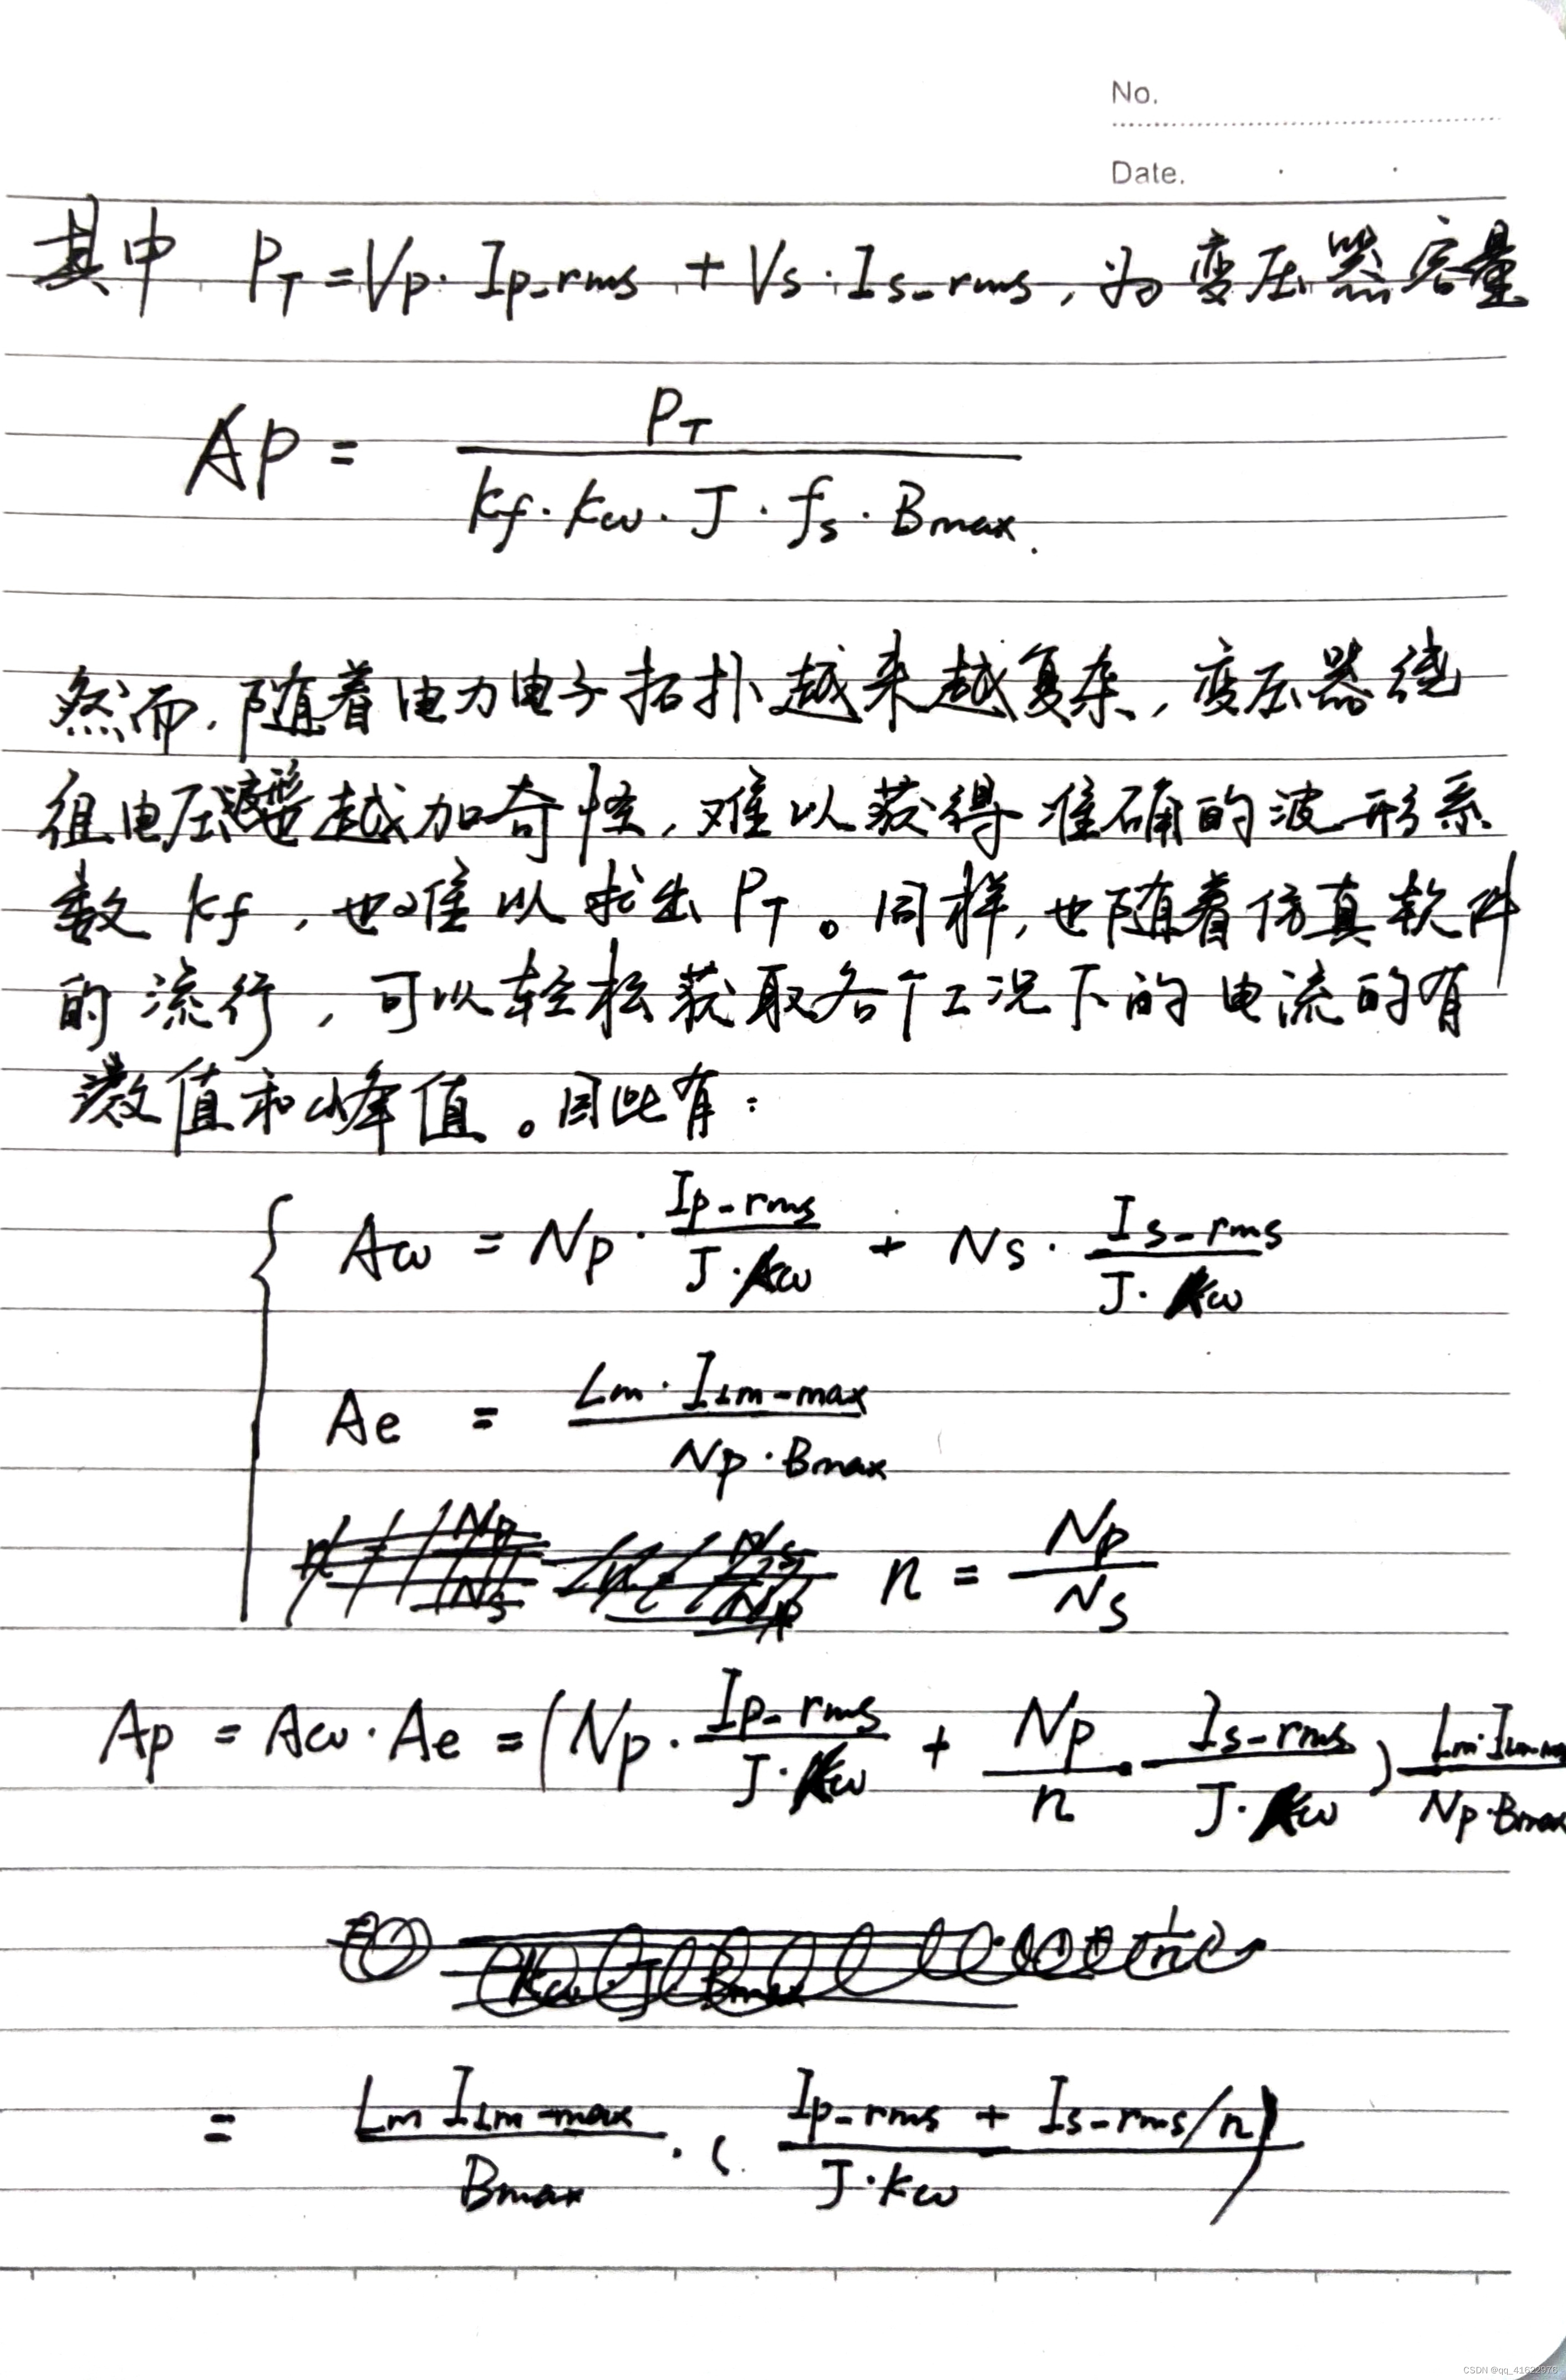 No.
Date.
其中 P_T = Vp · Ip_rms + Vs · Is_rms, 为变压器容量
AP = P_T / (kf · kw · J · fs · Bmax)
然而, 随着电力电子拓扑越来越复杂, 变压器绕
组电压波形越加奇怪, 难以获得准确的波形系
数 kf, 也难以求出 P_T。同样, 也随着仿真软件
的流行, 可以轻松获取各个工况下的电流的有
效值和峰值。因此有:
Aw = Np · Ip_rms / (J · kw) + Ns · Is_rms / (J · kw)
Ae = Lm · ILm_max / (Np · Bmax)
n = Np / Ns
Ap = Aw · Ae = (Np · Ip_rms / (J · kw) + Np / n · Is_rms / (J · kw)) Lm · ILm / (Np · Bmax
= Lm ILm_max / Bmax · ((Ip_rms + Is_rms/n) / (J · kw))
CSDN @qq_41632975